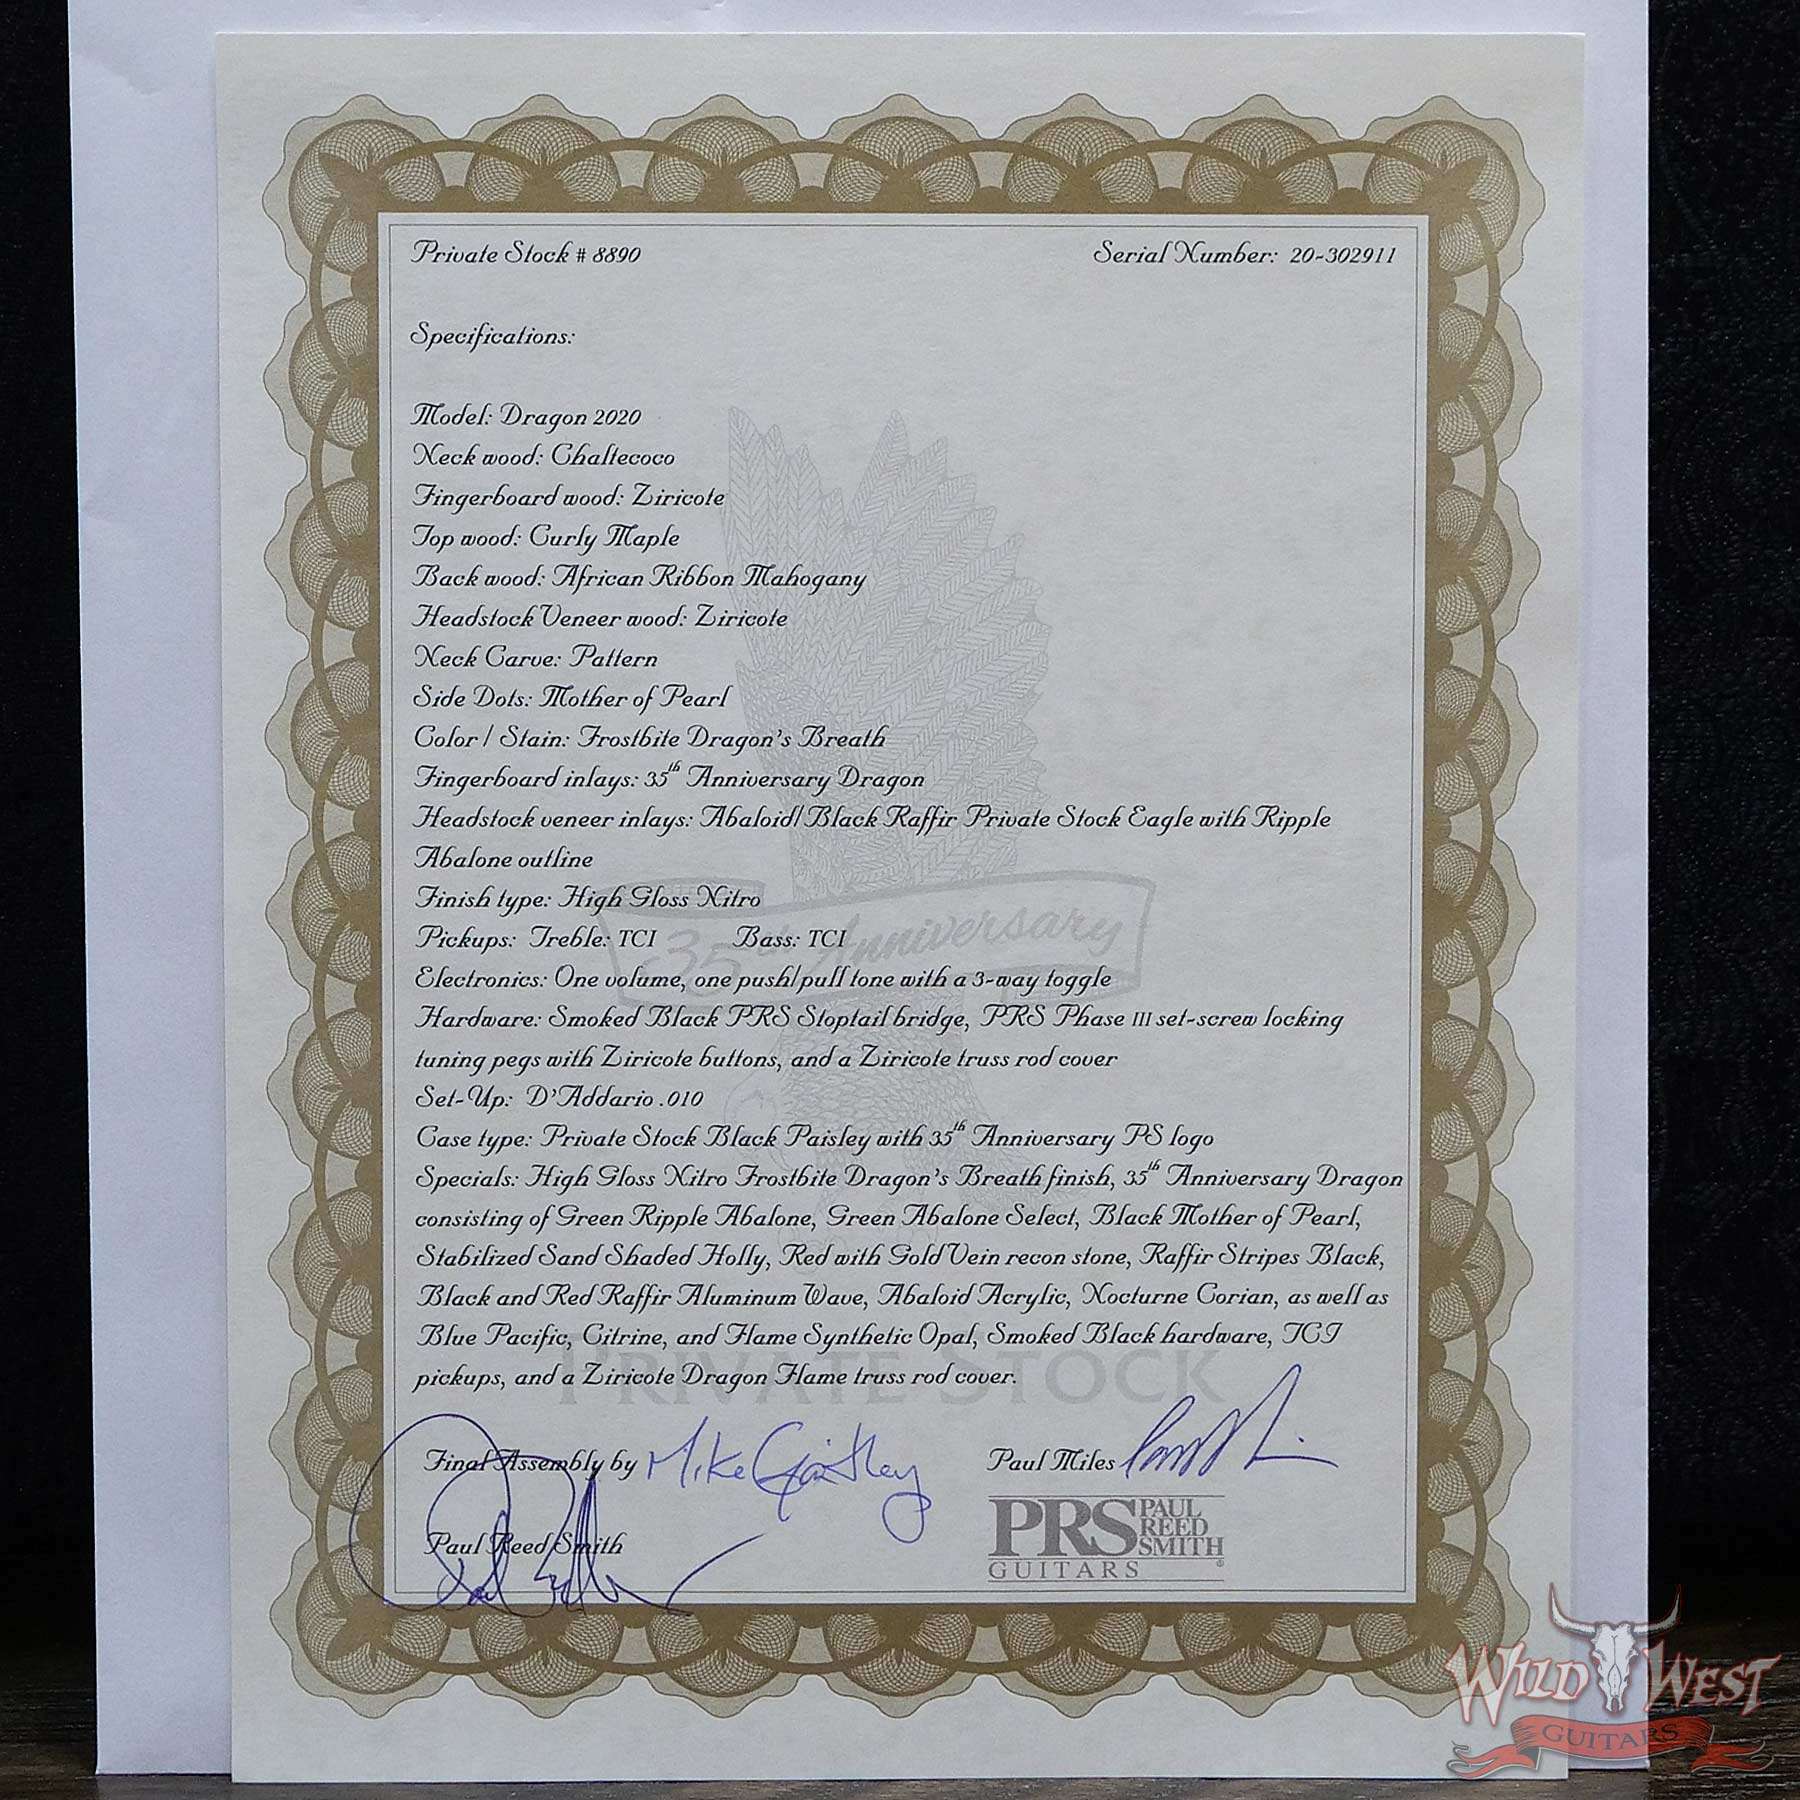 Private Stock # 8890 Serial Number: 20-302911
Specifications:
Model: Dragon 2020
Neck wood: Chaltecoco
Fingerboard wood: Ziricote
Top wood: Curly Maple
Back wood: African Ribbon Mahogany
Headstock Veneer wood: Ziricote
Neck Carve: Pattern
Side Dots: Mother of Pearl
Color / Stain: Frostbite Dragon's Breath
Fingerboard inlays: 35th Anniversary Dragon
Headstock veneer inlays: Abaloid/Black Raffir Private Stock Eagle with Ripple
Abalone outline
Finish type: High Gloss Nitro
Pickups: Treble: TCI Bass: TCI
35th Anniversary
Electronics: One volume, one push/pull tone with a 3-way toggle
Hardware: Smoked Black PRS Stoptail bridge, PRS Phase III set-screw locking
tuning pegs with Ziricote buttons, and a Ziricote truss rod cover
Set-Up: D'Addario .010
Case type: Private Stock Black Paisley with 35th Anniversary PS logo
Specials: High Gloss Nitro Frostbite Dragon's Breath finish, 35th Anniversary Dragon
consisting of Green Ripple Abalone, Green Abalone Select, Black Mother of Pearl,
Stabilized Sand Shaded Holly, Red with Gold Vein recon stone, Raffir Stripes Black,
Black and Red Raffir Aluminum Wave, Abaloid Acrylic, Nocturne Corian, as well as
Blue Pacific, Citrine, and Flame Synthetic Opal, Smoked Black hardware, TCI
pickups, and a Ziricote Dragon Flame truss rod cover.
PRIVATE STOCK
Final Assembly by Mike Paul Miles
Paul Reed Smith
PRS PAUL
REED
SMITH
GUITARS ®
WILD WEST
GUITARS